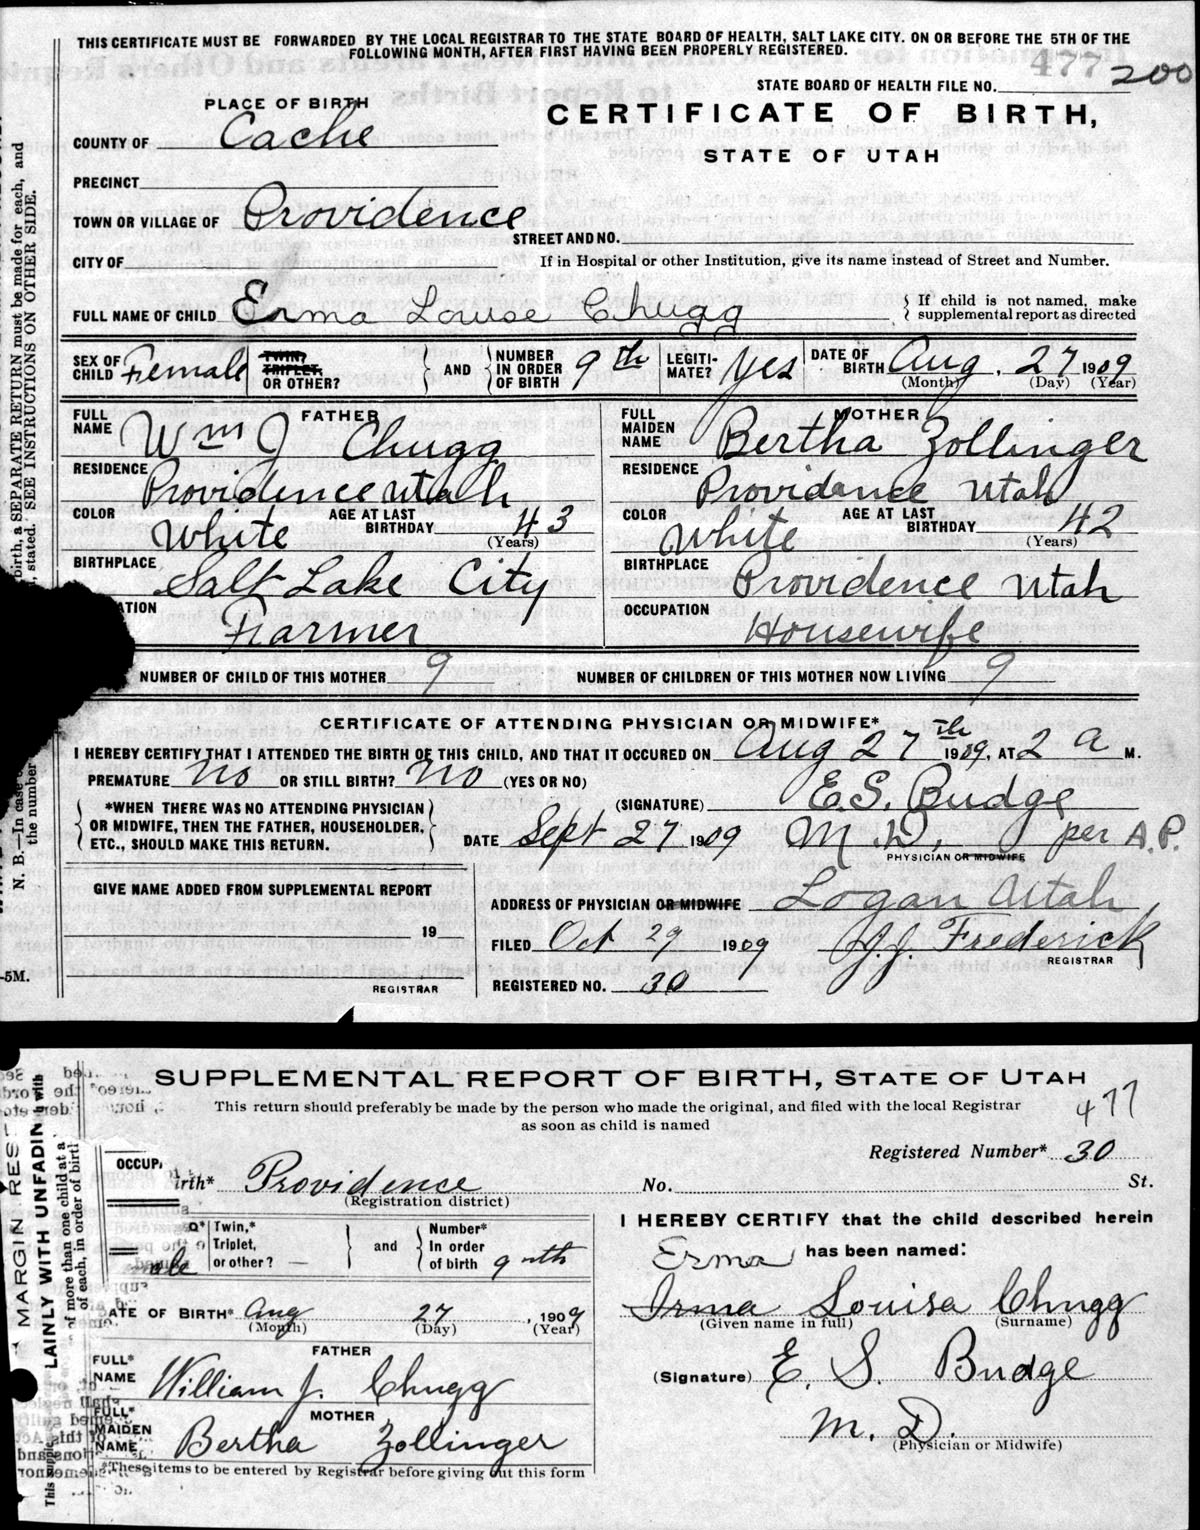 THIS CERTIFICATE MUST BE FORWARDED BY THE LOCAL REGISTRAR TO THE STATE BOARD OF HEALTH, SALT LAKE CITY. ON OR BEFORE THE 5TH OF THE
FOLLOWING MONTH, AFTER FIRST HAVING BEEN PROPERLY REGISTERED.
477
200
STATE BOARD OF HEALTH FILE NO.
PLACE OF BIRTH
CERTIFICATE OF BIRTH,
STATE OF UTAH
COUNTY OF Cache
PRECINCT
TOWN OR VILLAGE OF Providence
STREET AND NO.
CITY OF
If in Hospital or other Institution, give its name instead of Street and Number.
FULL NAME OF CHILD Erma Louise Chugg
If child is not named, make
supplemental report as directed
SEX OF CHILD Female
TWIN, TRIPLET, OR OTHER?
AND
NUMBER IN ORDER OF BIRTH 9th
LEGITIMATE? Yes
DATE OF BIRTH Aug. 27 1909
(Month) (Day) (Year)
FATHER
FULL NAME Wm J Chugg
MOTHER
FULL MAIDEN NAME Bertha Zollinger
RESIDENCE Providence Utah
RESIDENCE Providance Utah
COLOR White AGE AT LAST BIRTHDAY 43 (Years)
COLOR White AGE AT LAST BIRTHDAY 42 (Years)
BIRTHPLACE Salt Lake City
BIRTHPLACE Providence Utah
ATION Farmer
OCCUPATION Housewife
NUMBER OF CHILD OF THIS MOTHER 9
NUMBER OF CHILDREN OF THIS MOTHER NOW LIVING 9
CERTIFICATE OF ATTENDING PHYSICIAN OR MIDWIFE*
I HEREBY CERTIFY THAT I ATTENDED THE BIRTH OF THIS CHILD, AND THAT IT OCCURED ON Aug 27th 1909, AT 2 a M.
PREMATURE No OR STILL BIRTH? No (YES OR NO)
*WHEN THERE WAS NO ATTENDING PHYSICIAN
OR MIDWIFE, THEN THE FATHER, HOUSEHOLDER,
ETC., SHOULD MAKE THIS RETURN.
(SIGNATURE) E.S. Budge
DATE Sept 27 1909 M.D. per A.P.
PHYSICIAN OR MIDWIFE
GIVE NAME ADDED FROM SUPPLEMENTAL REPORT
19
REGISTRAR
ADDRESS OF PHYSICIAN OR MIDWIFE Logan Utah
FILED Oct 29 1909 J.J. Frederick
REGISTRAR
REGISTERED NO. 30
birth, a SEPARATE RETURN must be made for each, and
stated. SEE INSTRUCTIONS ON OTHER SIDE.
N. B.—In case
the number
-5M.
SUPPLEMENTAL REPORT OF BIRTH, STATE OF UTAH
This return should preferably be made by the person who made the original, and filed with the local Registrar
as soon as child is named
477
Registered Number* 30
OCCUP
irth* Providence
(Registration district)
No. St.
ale
Twin,* Triplet, or other? —
and
Number* In order of birth 9nth
DATE OF BIRTH* Aug 27, 1909
(Month) (Day) (Year)
FATHER
FULL* NAME William J. Chugg
MOTHER
FULL* MAIDEN NAME Bertha Zollinger
*These items to be entered by Registrar before giving out this form
I HEREBY CERTIFY that the child described herein
Erma has been named:
Irma Louisa Chugg
(Given name in full) (Surname)
(Signature) E. S. Budge
M. D.
(Physician or Midwife)
MARGIN RES
LAINLY WITH UNFADIN
of more than one child at a
of each, in order of birt
This supple